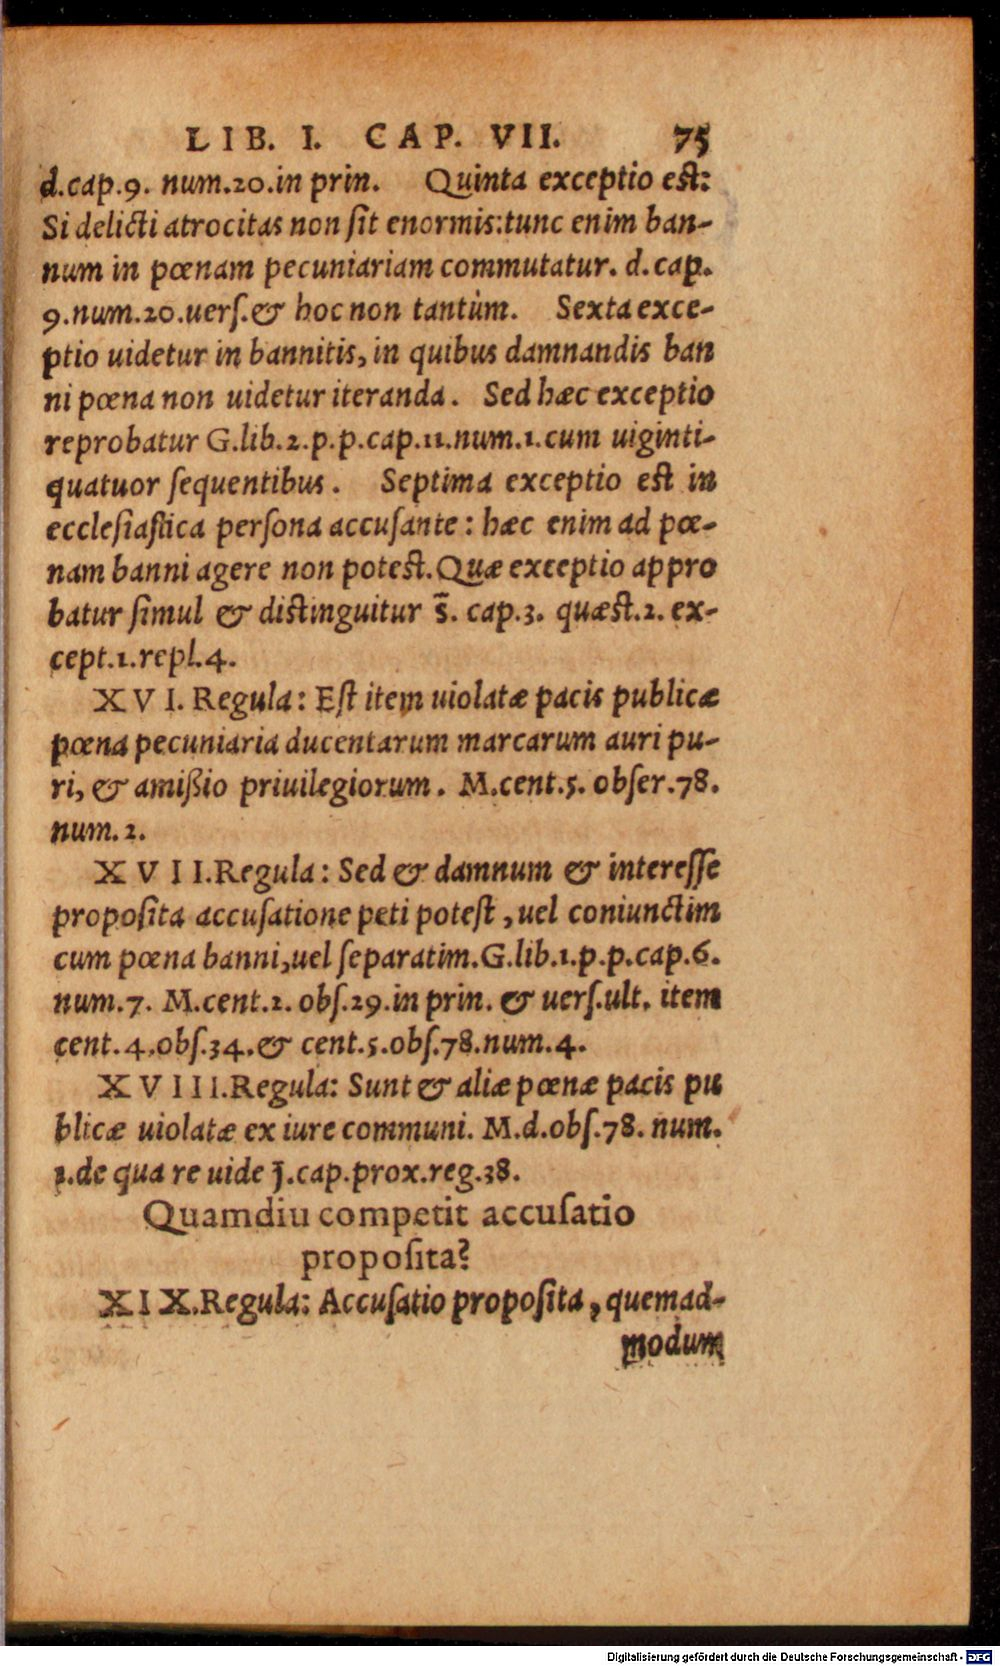 LIB. I. CAP. VII. 75
d.cap.9. num.20.in prin. Quinta exceptio est:
Si delicti atrocitas non ſit enormis:tunc enim ban-
num in pœnam pecuniariam commutatur. d.cap.
9.num.20.uerſ.& hoc non tantùm. Sexta exce-
ptio uidetur in bannitis, in quibus damnandis ban
ni pœna non uidetur iteranda. Sed hæc exceptio
reprobatur G.lib.2.p.p.cap.11.num.1.cum uiginti-
quatuor ſequentibus. Septima exceptio est in
eccleſiaſtica perſona accuſante: hæc enim ad pœ-
nam banni agere non potest.Quæ exceptio appro
batur ſimul & distinguitur s̄. cap.3. quæst.2. ex-
cept.1.repl.4.
XVI. Regula: Eſt item uiolatæ pacis publicæ
pœna pecuniaria ducentarum marcarum auri pu-
ri, & amißio priuilegiorum. M.cent.5. obſer.78.
num.2.
XVII.Regula: Sed & damnum & intereſſe
propoſita accuſatione peti poteſt, uel coniunctim
cum pœna banni,uel ſeparatim.G.lib.1.p.p.cap.6.
num.7. M.cent.2. obſ.29.in prin. & uerſ.ult. item
cent.4.obſ.34.& cent.5.obſ.78.num.4.
XVIII.Regula: Sunt & aliæ pœnæ pacis pu
blicæ uiolatæ ex iure communi. M.d.obſ.78. num.
3.de qua re uide j̄.cap.prox.reg.38.
Quamdiu competit accuſatio
propoſita?
XIX.Regula: Accuſatio propoſita, quemad-
modum
Digitalisierung gefördert durch die Deutsche Forschungsgemeinschaft - DFG